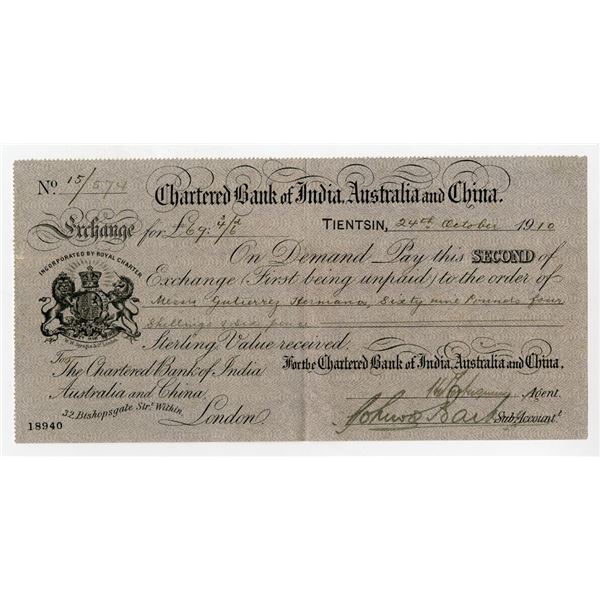 No. 15/574
Chartered Bank of India, Australia and China.
Exchange for £69: 4/6
TIENTSIN, 24th October 1910
On Demand Pay this SECOND of
INCORPORATED BY ROYAL CHARTER
Exchange (First being unpaid) to the order of
Messrs Gutierrez Hermana, Sixty nine Pounds four
Shillings & Six pence
Sterling Value received.
For the Chartered Bank of India, Australia and China.
To
The Chartered Bank of India
Australia and China,
32, Bishopsgate Strt. Within,
London
Agent.
Sub Accountt.
18940